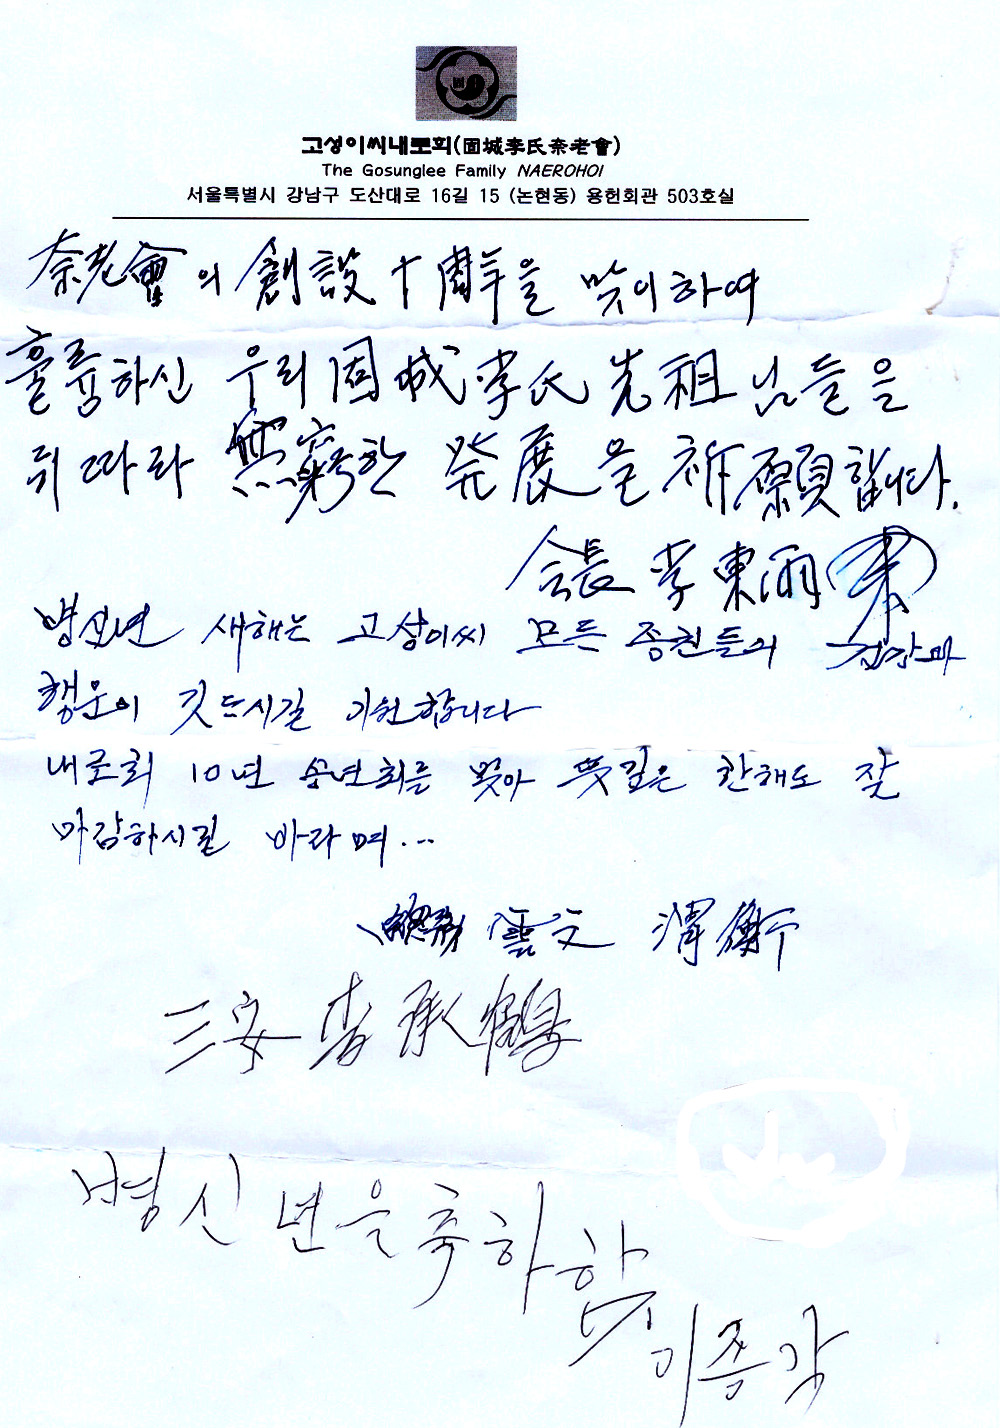 고성이씨내로회(固城李氏奈老會)
The Gosunglee Family NAEROHOI
서울특별시 강남구 도산대로 16길 15 (논현동) 용헌회관 503호실
奈老會의 創設十周年을 맞이하여
훌륭하신 우리 固城李氏 先祖님들을
뒤따라 無窮한 発展을 祈願합니다.
会長 李東雨
병신년 새해는 고성이씨 모든 종친들의 건강과
행운이 깃드시길 기원합니다
내로회 10년 송년회를 맞아 뜻깊은 한해도 잘
마감하시길 바라며...
總務 雲文
三安 李承鶴
병신년을 축하함
이종각